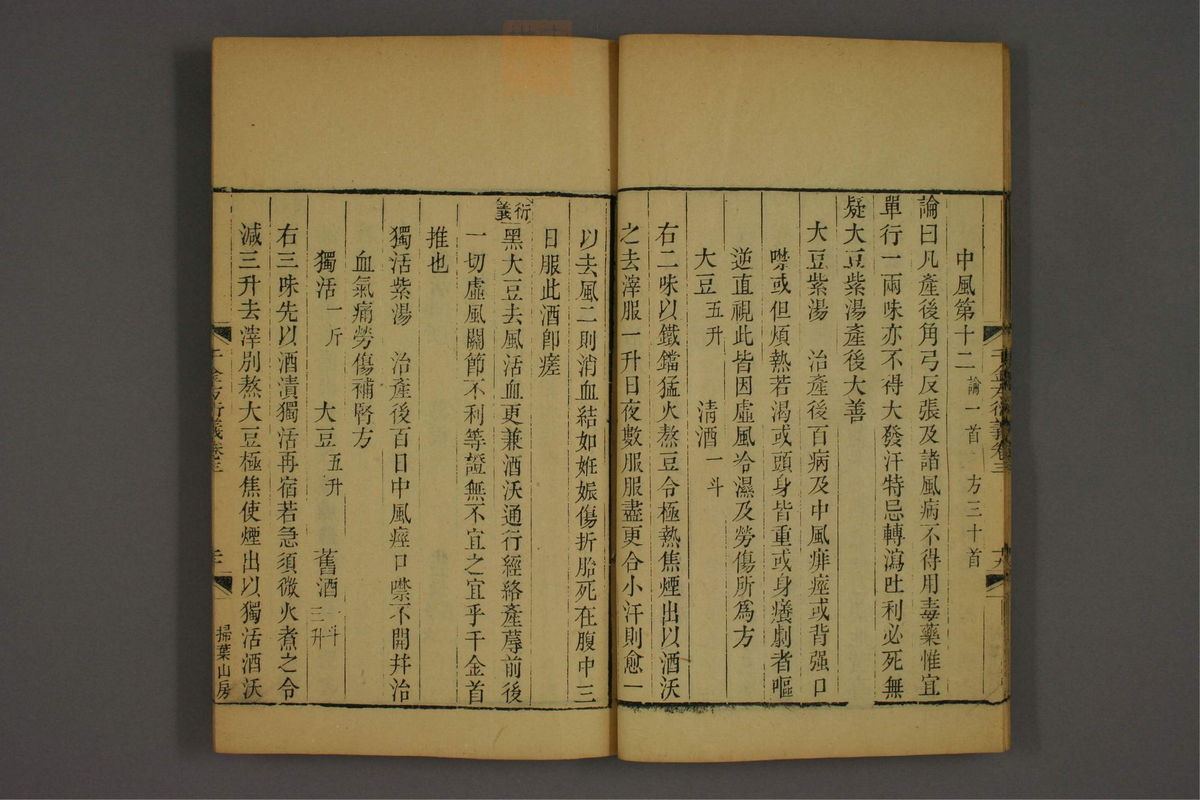 中風第十二 論一首 方三十首
論曰凡產後角弓反張及諸風病不得用毒藥惟宜
單行一兩味亦不得大發汗特忌轉瀉吐利必死無
疑大豆紫湯產後大善
大豆紫湯 治產後百病及中風痱痙或背强口
噤或但煩熱若渴或頭身皆重或身癢劇者嘔
逆直視此皆因虛風冷濕及勞傷所爲方
大豆五升 淸酒一斗
右二味以鐵鐺猛火熬豆令極熱焦煙出以酒沃
之去滓服一升日夜數服服盡更合小汗則愈一
以去風二則消血結如姙娠傷折胎死在腹中三
日服此酒卽瘥
衍義 黑大豆去風活血更兼酒沃通行經絡產蓐前後
一切虛風關節不利等證無不宜之宜乎千金首
推也
獨活紫湯 治產後百日中風痙口噤不開幷治
血氣痛勞傷補腎方
獨活一斤 大豆五升 舊酒一斗三升
右三味先以酒漬獨活再宿若急須微火煮之令
減三升去滓別熬大豆極焦使煙出以獨活酒沃
千金方衍義卷三
掃葉山房